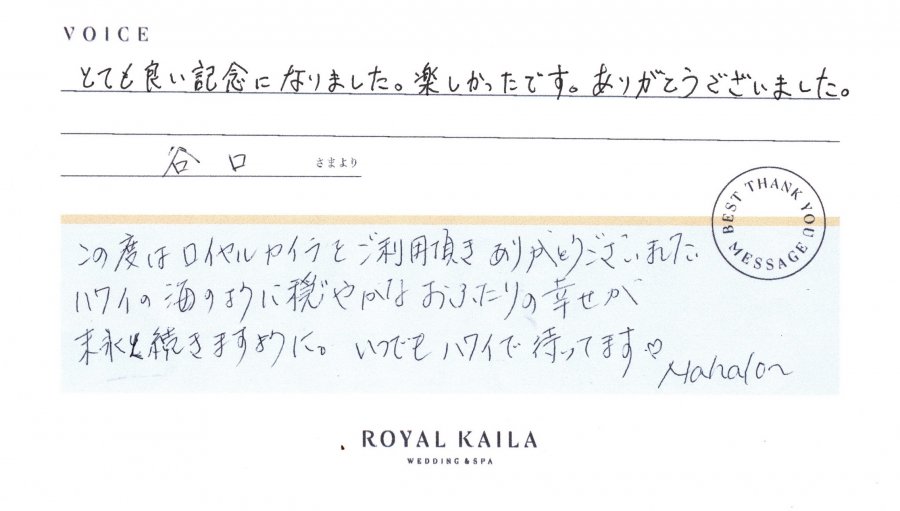 VOICE
とても良い記念になりました。楽しかったです。ありがとうございました。
谷口 さまより
BEST THANK YOU MESSAGE
この度はロイヤルカイラをご利用頂きありがとうございました
ハワイの海のように穏やかなおふたりの幸せが
末永く続きますように。いつでもハワイで待ってます♡
Mahalo~
ROYAL KAILA
WEDDING & SPA